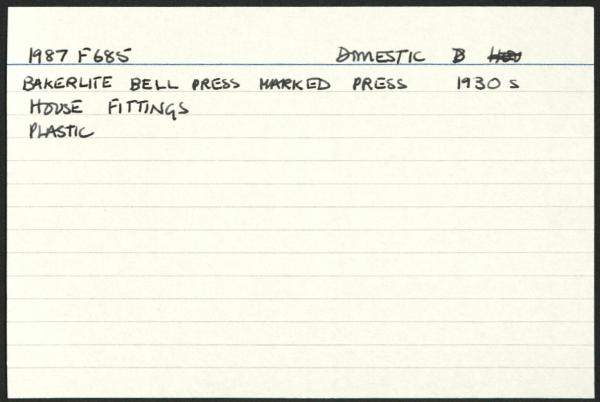 1987 F685 DOMESTIC B
BAKERLITE BELL PRESS MARKED PRESS 1930 s
HOUSE FITTINGS
PLASTIC